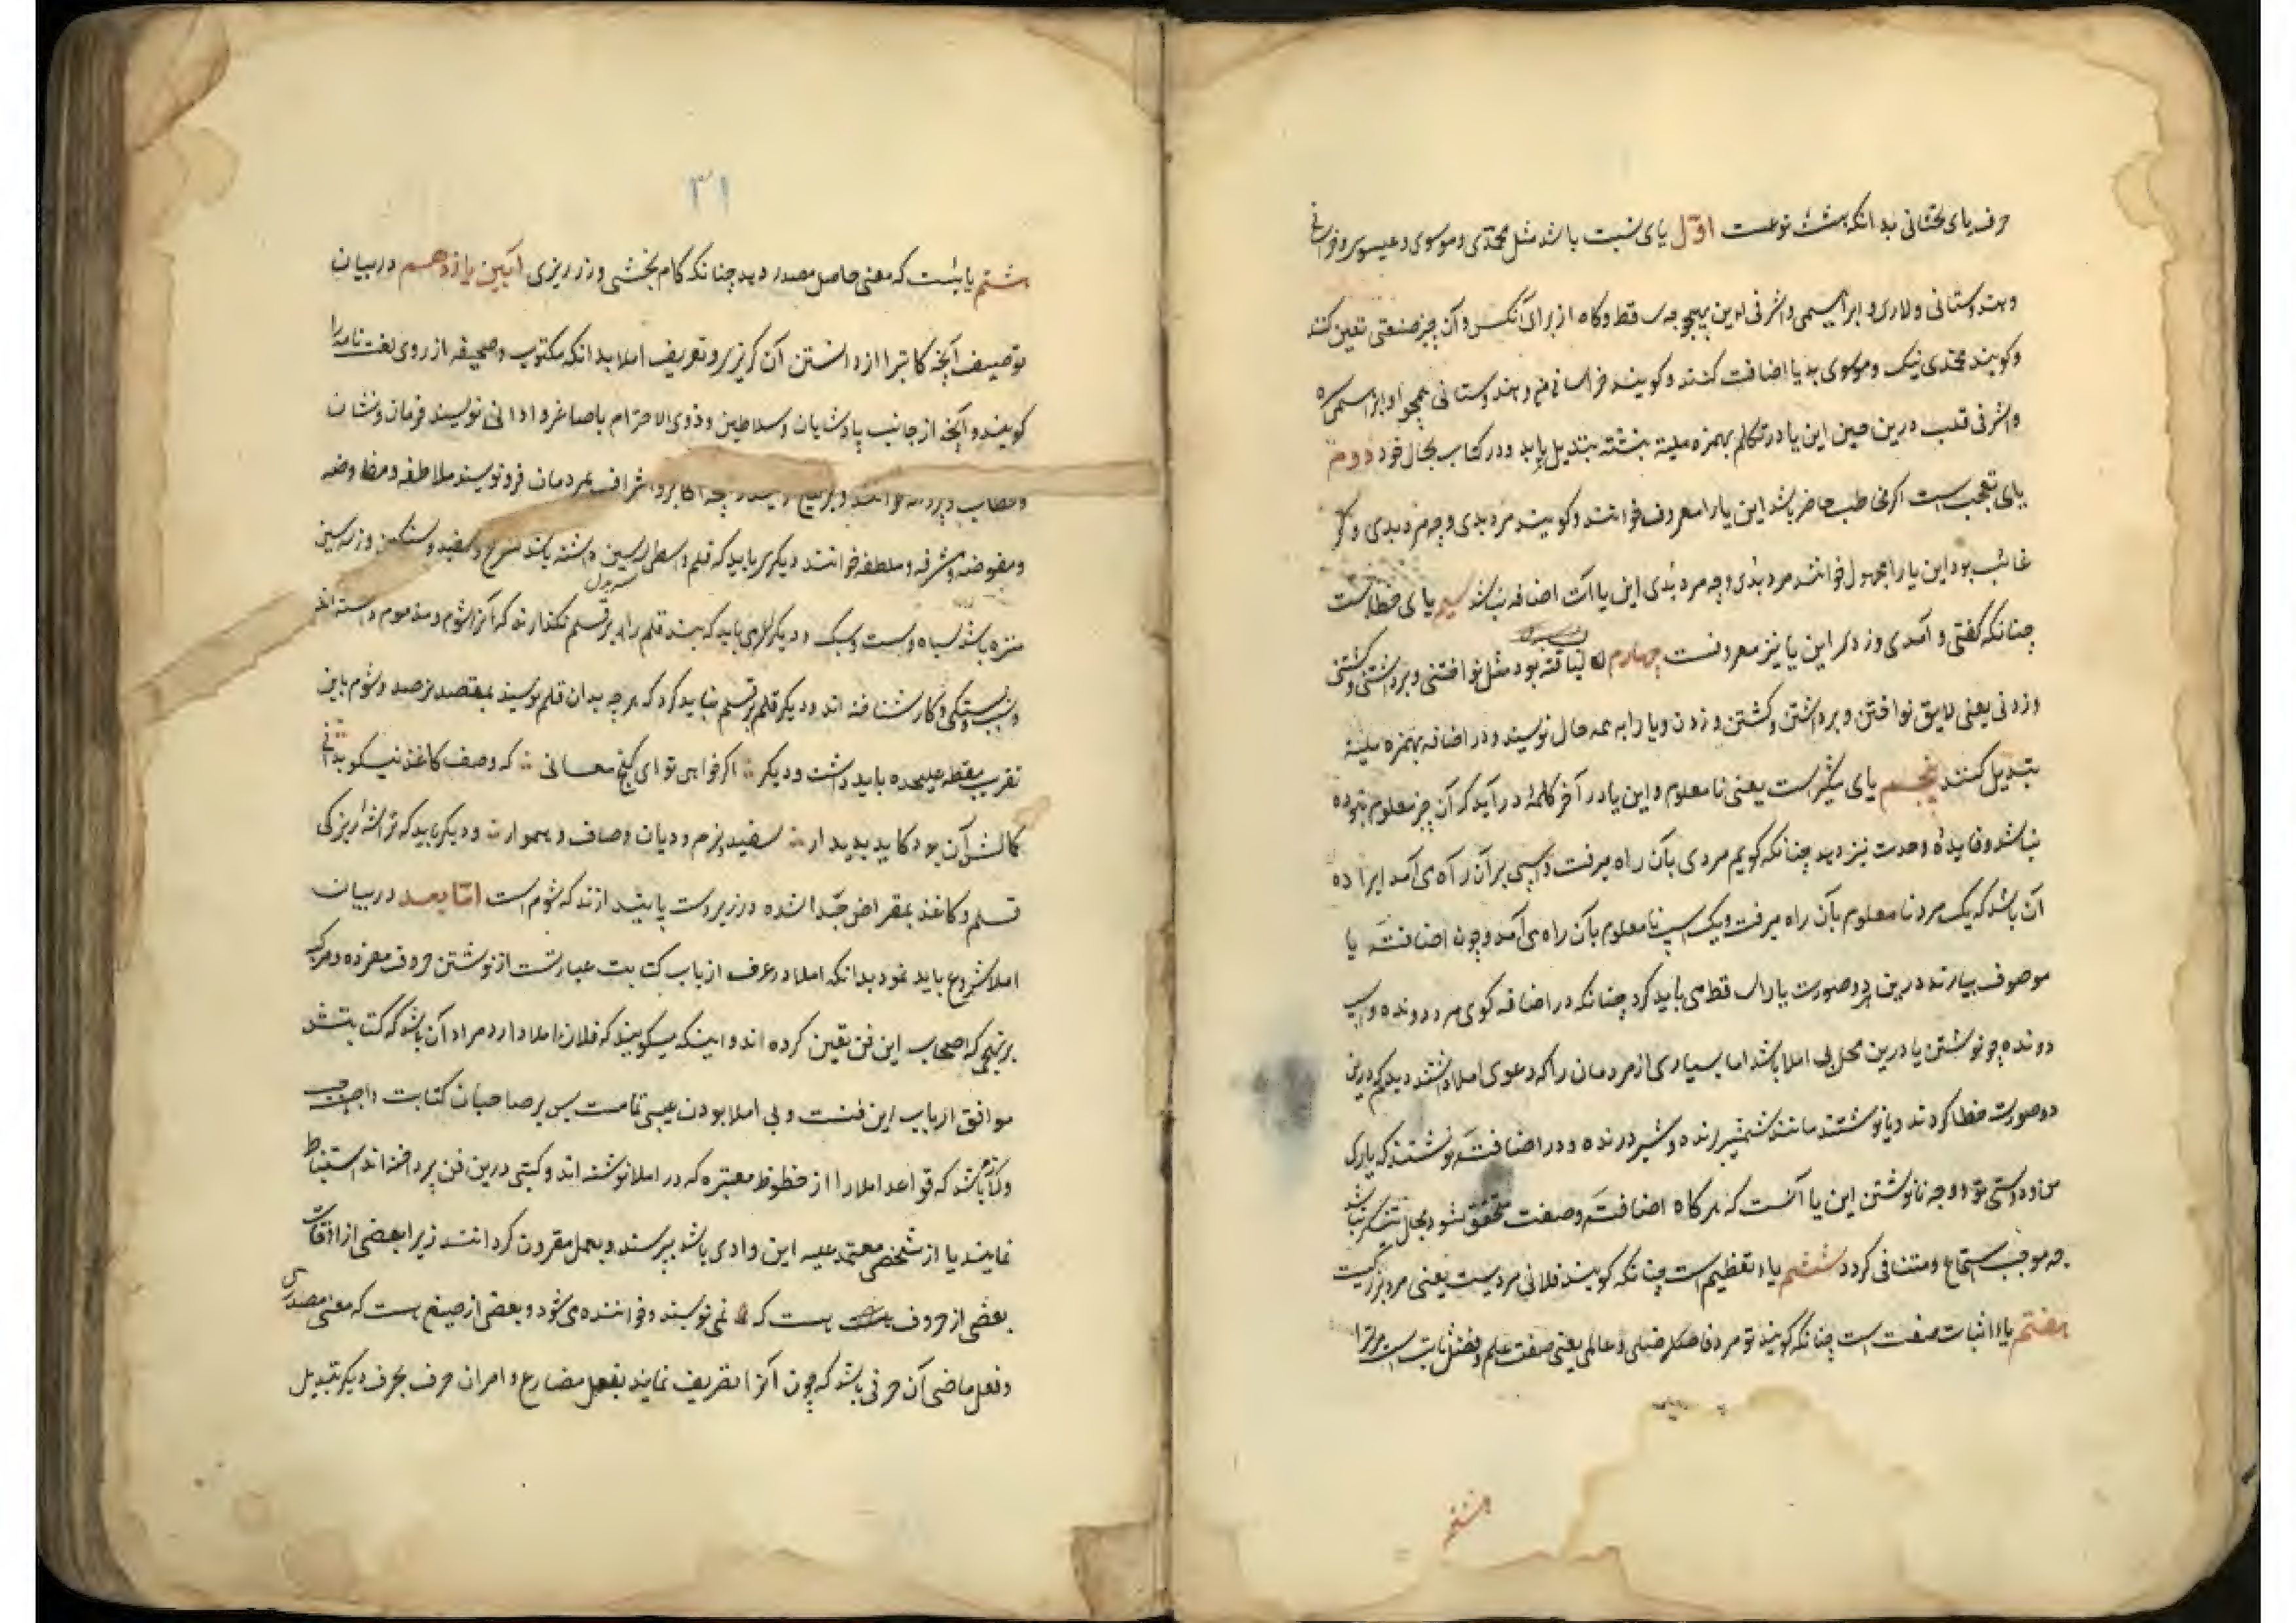 حرف یای تحتانی بدانکه هشت نوعست اوّل یای نسبت باشد مثل محمّدی و موسوی و عیسوی و خراسانی
و هندوستانی و لاری و ابراهیمی و اشرفی این بهیچوجه ساقط و گاه از برای آنکس و آن چیز صنعتی تعین کنند
و کویند محمّدی نیک و موسوی بد یا اضافت کنند و کویند خراسانی من و هندوستانی همچو او و ابراهیمی سره
و اشرفی قلب درین حین این یا در تکلم بهمزه ملینه تبدیل یابد و در کتاب بحال خود دوم
یای تعجبست اکر مخاطب حاضر باشد این یا را معروف خوانند و کویند مرد بدی و چه مرد بدی و کر
غائب بود این یا را مجهول خوانند مرد بدی و چه مرد بدی این یا را اضافه نباشد سیم یای خطابست
چنانکه کفتی و آمدی و زدی این یا نیز معروفست چهارم لیاقه بود مثل نواختنی و برداشتنی و کشتنی
و زدنی یعنی لایق نواختن و برداشتن و کشتن و زدن و یا را به همه حال نویسند و در اضافه بهمزه ملینه
تبدیل کنند پنجم یای تنکیر است یعنی نا معلوم و این یا در آخر کلمهٔ در آید که آن چیز معلوم نبوده
نباشد و فایدهٔ وحدت نیز دهد چنانکه کویم مردی بآن راه میرفت و اسپی بر آن راه می آمد ایراده
آن باشد که یک مرد نا معلوم بآن راه میرفت و یک اسپ نا معلوم بآن راه می آمد و چون اضافتَه یا
موصوف بیارند درین دو صورت یا را ساقط می باید کرد چنانکه در اضافه کوی مرد دونده و اسپ
دونده چو نوشتن یا درین محل بی املا باشد اما بسیاری از مردمان را که دعوی املا داشتند دیدیم که درین
دو صورت خطا کردند و یا نوشتند مانند شمشیر برنده و شیر درنده و در اضافتَه نوشتند که یاری
من و دوستی تو و وجه نا نوشتن این یا آنست که هر کاه اضافتَه و صفت محقق شود بحال تنکیر نباشد
چه موجب استماع و متنافی کردد ششم یاء تعظیم است چنانکه کویند فلانی مردیست یعنی مرد بزرکیست
هفتم یاء اثبات صفت است چنانکه کویند تو مرد فاضلی و عالمی یعنی صفت علم و فضل ثابت است مر ترا
هشتم
۳۱
هشتم یائیست که معنی حاصل مصدر دهد چنانکه کام بخشی و زرریزی آئین یازدهم در بیان
توصیف آنچه کاتبرا از دانستن آن کریز بر و تعریف املا بدانکه مکتوب و صحیفه از روی لغت نامه را
کویند و آنچه از جانب پادشاهان و سلاطین و ذوی الاحترام باصاغر و ادانی نویسند فرمان و نشان
و خطاب و پروانه خوانند و اکابر و اشراف بمردمان فرو نویسند ملاطفه و مفاوضه
و مفوضه و مشرفه و ملطفه خوانند دیکری باید که قلم واسطی داشته باشد سرخ و سفید و سنکین و زنهار
منزه باشد سیاه و سست و سبک و دیکر باید که بند قلم را بر سر قلم نکذارند که آنرا شوم و مذموم دانسته اند
و بستکی کار شناخته اند و دیکر قلم بر قلم نباید کرد که هر چه بدان قلم نویسند بمقصد نرسد و شوم باین
تقریب مقطه علیحده باید داشت و دیکر ∴ اکر خواهی تو ای کنج معانی ∴ که وصف کاغذ نیکو بدانی
کمالش آن بود کاید پدیدار ∴ سفید و نرم و دیان و صاف و هموار ∴ و دیکر باید که تراشه ریزکی
قلم و کاغذ بمقراض جدا شده در زیر دست پا نیندازند که شوم است امّا بعد در بیان
املا شروع باید نمود بدانکه املا در عرف ارباب کتابت عبارتست از نوشتن حروف مفرده و مرکبه
بر نهجی که اصحاب این فن تعین کرده اند و اینکه میکویند که فلان املا دارد مراد آن باشد که کتابتش
موافق ارباب این فنست و بی املا بودن عیبی تمامست پس بر صاحبان کتابت واجب
و لازم باشد که قواعد املا را از خطوط معتبره که در املا نوشته اند و کتبی درین فن پرداخته اند استنباط
نمایند یا از شخصی معتمد علیه این وادی باشد بپرسند و بعمل مقرون کردانند زیرا بعضی از اوقات
بعضی از حروف هست که نمی نویسند و خوانده می شود و بعضی از صیغ هست که معنی مصدری
و فعل ماضی آن حرفی باشد که چون آنرا تصریف نمایند بفعل مضارع و امر آن حرف بحرف دیکر تبدیل